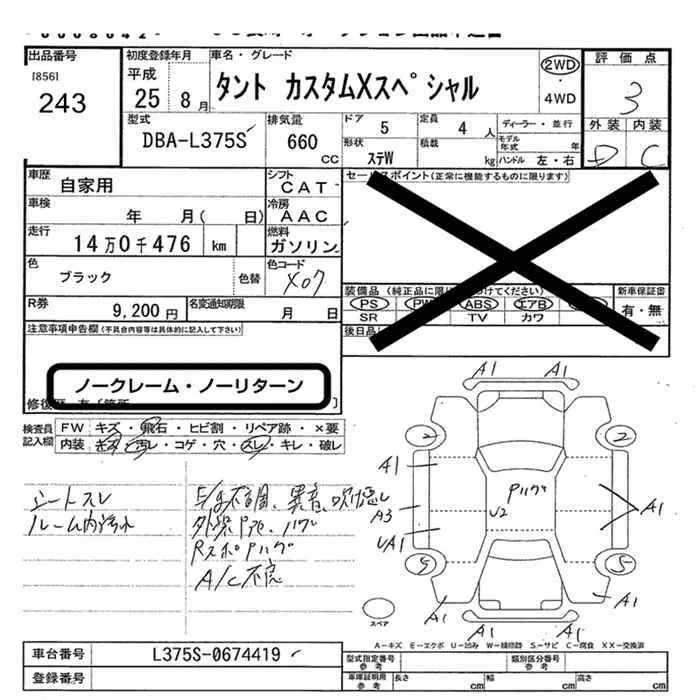 出品番号
[856]
243
初度登録年月
平成
25 8月
車名・グレード
タント カスタムXスペシャル
2WD
・
4WD
評価点
3
外装 内装
D C
型式
DBA-L375S
排気量
660
CC
ドア
5
定員
4 人
ディーラー・並行
モデル年式 年
形状
ステW
積載
kg
ハンドル 左・右
車歴
自家用
シフト
CAT
セールスポイント(正常に機能するものに限ります)
車検
年 月( 日)
冷房
AAC
走行
14万0千476 km
燃料
ガソリン
色
ブラック
色替
色コード
X07
R券
9,200円
名変通知期限
月 日
装備品
PS PW ABS エアB
SR TV カワ
新車保証書
有・無
後日品
注意事項申告欄(不具合内容等は具体的に記入して下さい)
ノークレーム・ノーリターン
検査員
記入欄
FW キズ・飛石・ヒビ割・リペア跡・×要
内装 キズ・汚レ・コゲ・穴・スレ・キレ・破レ
シートスレ
ルーム内汚れ
外装P他、ハゲ
RスポPハゲ
A/C不良
A1 A1
2 2
A1
Pハゲ
U2
A3
A1
UA1
5 5
A1 A1
A1 A1
スペア
A-キズ E-エクボ U-凹み W-補修跡 S-サビ C-腐食 XX-交換済
車台番号
L375S-0674419
型式指定番号
参考
類別区分番号
参考
登録番号
車庫証明用
参考
長さ cm 幅 cm 高さ cm